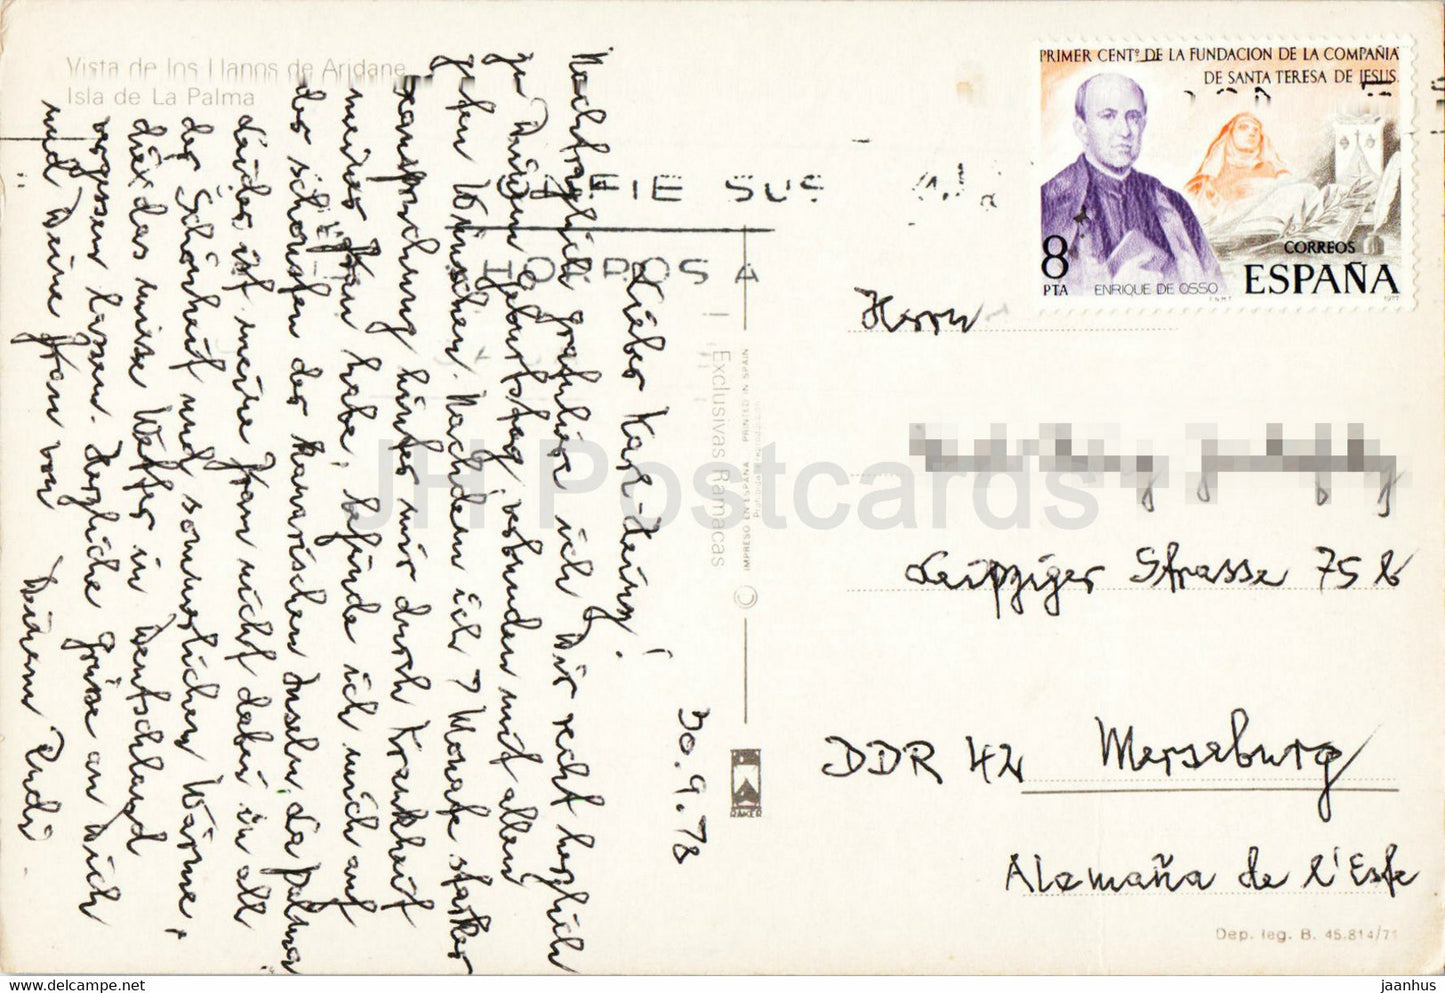 Vista de los Llanos de Aridane
Isla de La Palma
30.9.78
Lieber Karl-Heinz!
Nachträglich gratuliere ich Dir recht herzlich
zu Deinem Geburtstag verbunden mit allen
guten Wünschen. Nachdem ich 7 Monate starker
Beanspruchung hinter mir durch Krankheit
meiner Frau habe, befinde ich mich auf
der schönsten der Kanarischen Inseln, La Palma
Leider ist meine Frau nicht dabei in all
der Schönheit und sommerlichen Wärme,
die das miese Wetter in Deutschland
vergessen lassen. Herzliche Grüsse an Dich
und Deine Frau von
Deinem Rudi
Exclusivas Ramacas
IMPRESO EN ESPAÑA PRINTED IN SPAIN
Prohibida la reproducción
©
RAKER
PRIMER CENTº DE LA FUNDACION DE LA COMPAÑIA
DE SANTA TERESA DE JESUS.
8
PTA
ENRIQUE DE OSSO
CORREOS
ESPAÑA
F.N.M.T.
1977
Herrn
Leipziger Strasse 75 b
DDR 42 Merseburg
Alemaña de l'Este
Dep. leg. B. 45.814/71
JH Postcards
www.jhpostcards.com
jaanhus